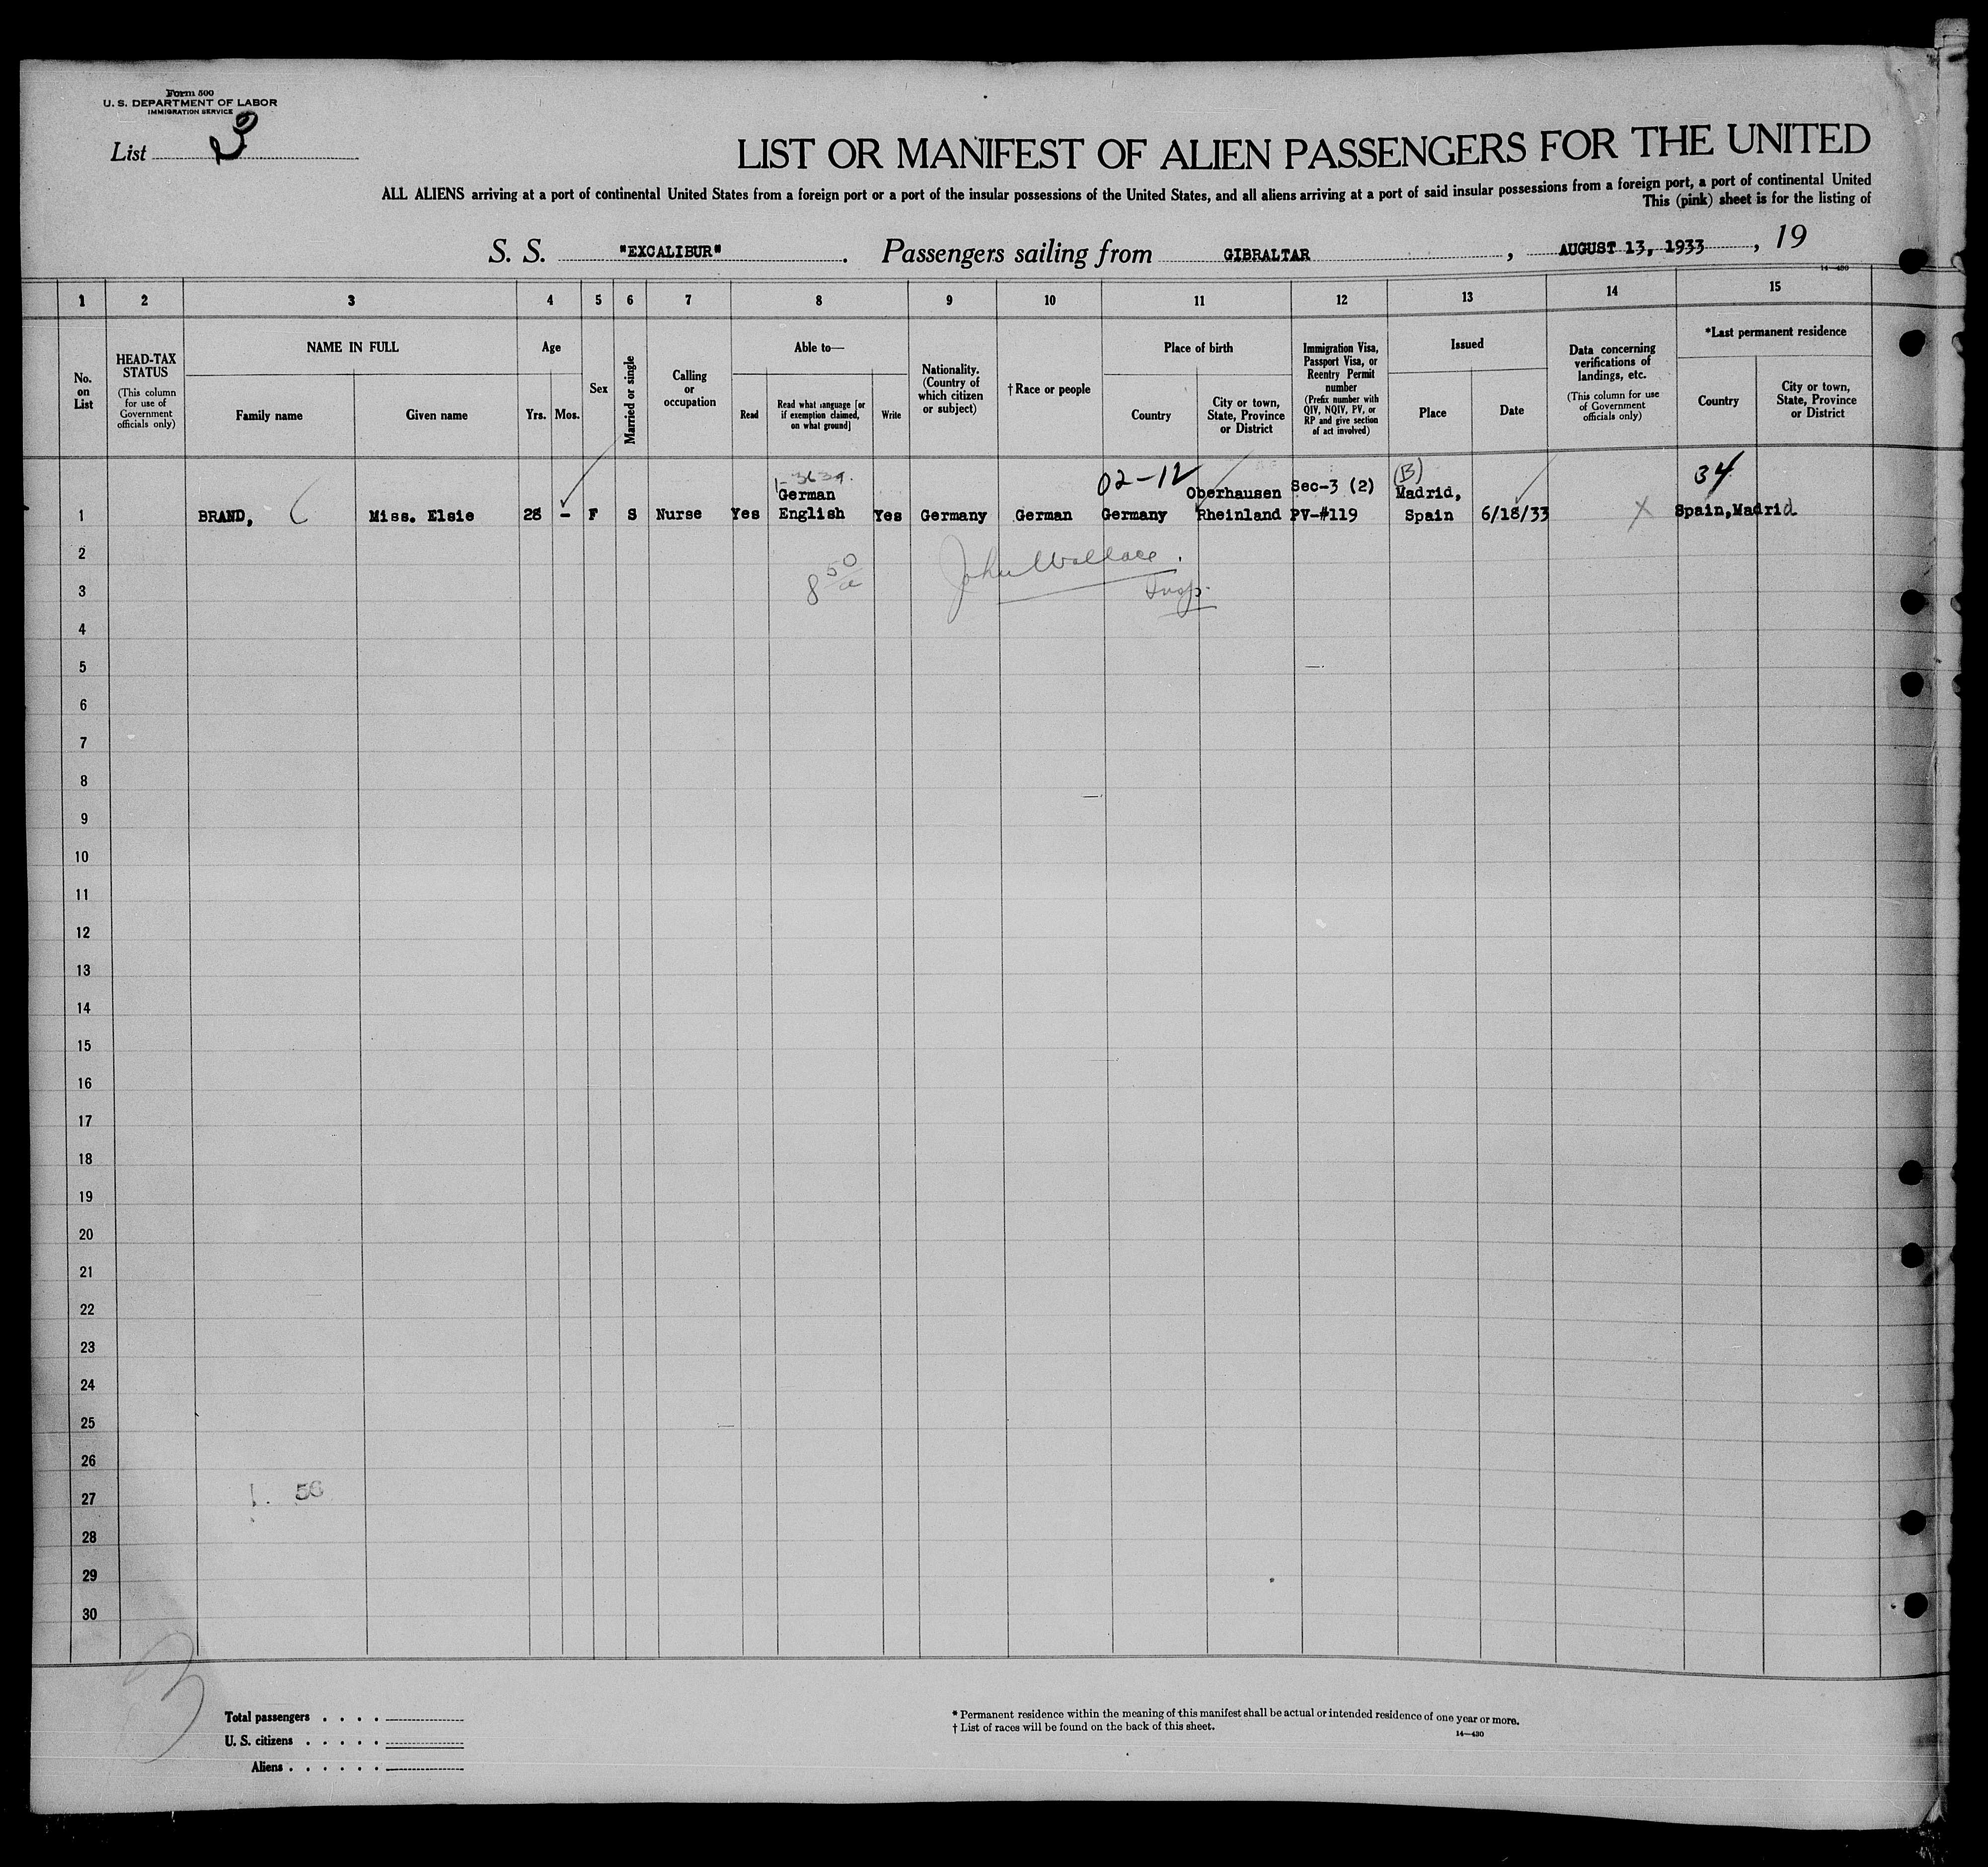 Form 500
U. S. DEPARTMENT OF LABOR
IMMIGRATION SERVICE
List 3
LIST OR MANIFEST OF ALIEN PASSENGERS FOR THE UNITED
ALL ALIENS arriving at a port of continental United States from a foreign port or a port of the insular possessions of the United States, and all aliens arriving at a port of said insular possessions from a foreign port, a port of continental United
This (pink) sheet is for the listing of
S. S. "EXCALIBUR". Passengers sailing from GIBRALTAR, AUGUST 13, 1933, 19
14—430
1 2 3 4 5 6 7 8 9 10 11 12 13 14 15
No. on List
HEAD-TAX STATUS
(This column for use of Government officials only)
NAME IN FULL
Family name
Given name
Age
Yrs.
Mos.
Sex
Married or single
Calling or occupation
Able to—
Read
Read what language [or if exemption claimed, on what ground]
Write
Nationality. (Country of which citizen or subject)
†Race or people
Place of birth
Country
City or town, State, Province or District
Immigration Visa, Passport Visa, or Reentry Permit number
(Prefix number with QIV, NQIV, PV, or RP and give section of act involved)
Issued
Place
Date
Data concerning verifications of landings, etc.
(This column for use of Government officials only)
*Last permanent residence
Country
City or town, State, Province or District
02-12 (B) 34
German Oberhausen Sec-3 (2) Madrid,
1 BRAND, Miss. Elsie 28 - F S Nurse Yes English Yes Germany German Germany Rheinland PV-#119 Spain 6/18/33 X Spain,Madrid
2
8 50 John Wallace.
3
Insp.
4
5
6
7
8
9
10
11
12
13
14
15
16
17
18
19
20
21
22
23
24
25
26
56
27
28
29
30
3
Total passengers . . . .
U. S. citizens . . . . .
Aliens . . . . . .
* Permanent residence within the meaning of this manifest shall be actual or intended residence of one year or more.
† List of races will be found on the back of this sheet.
14—430